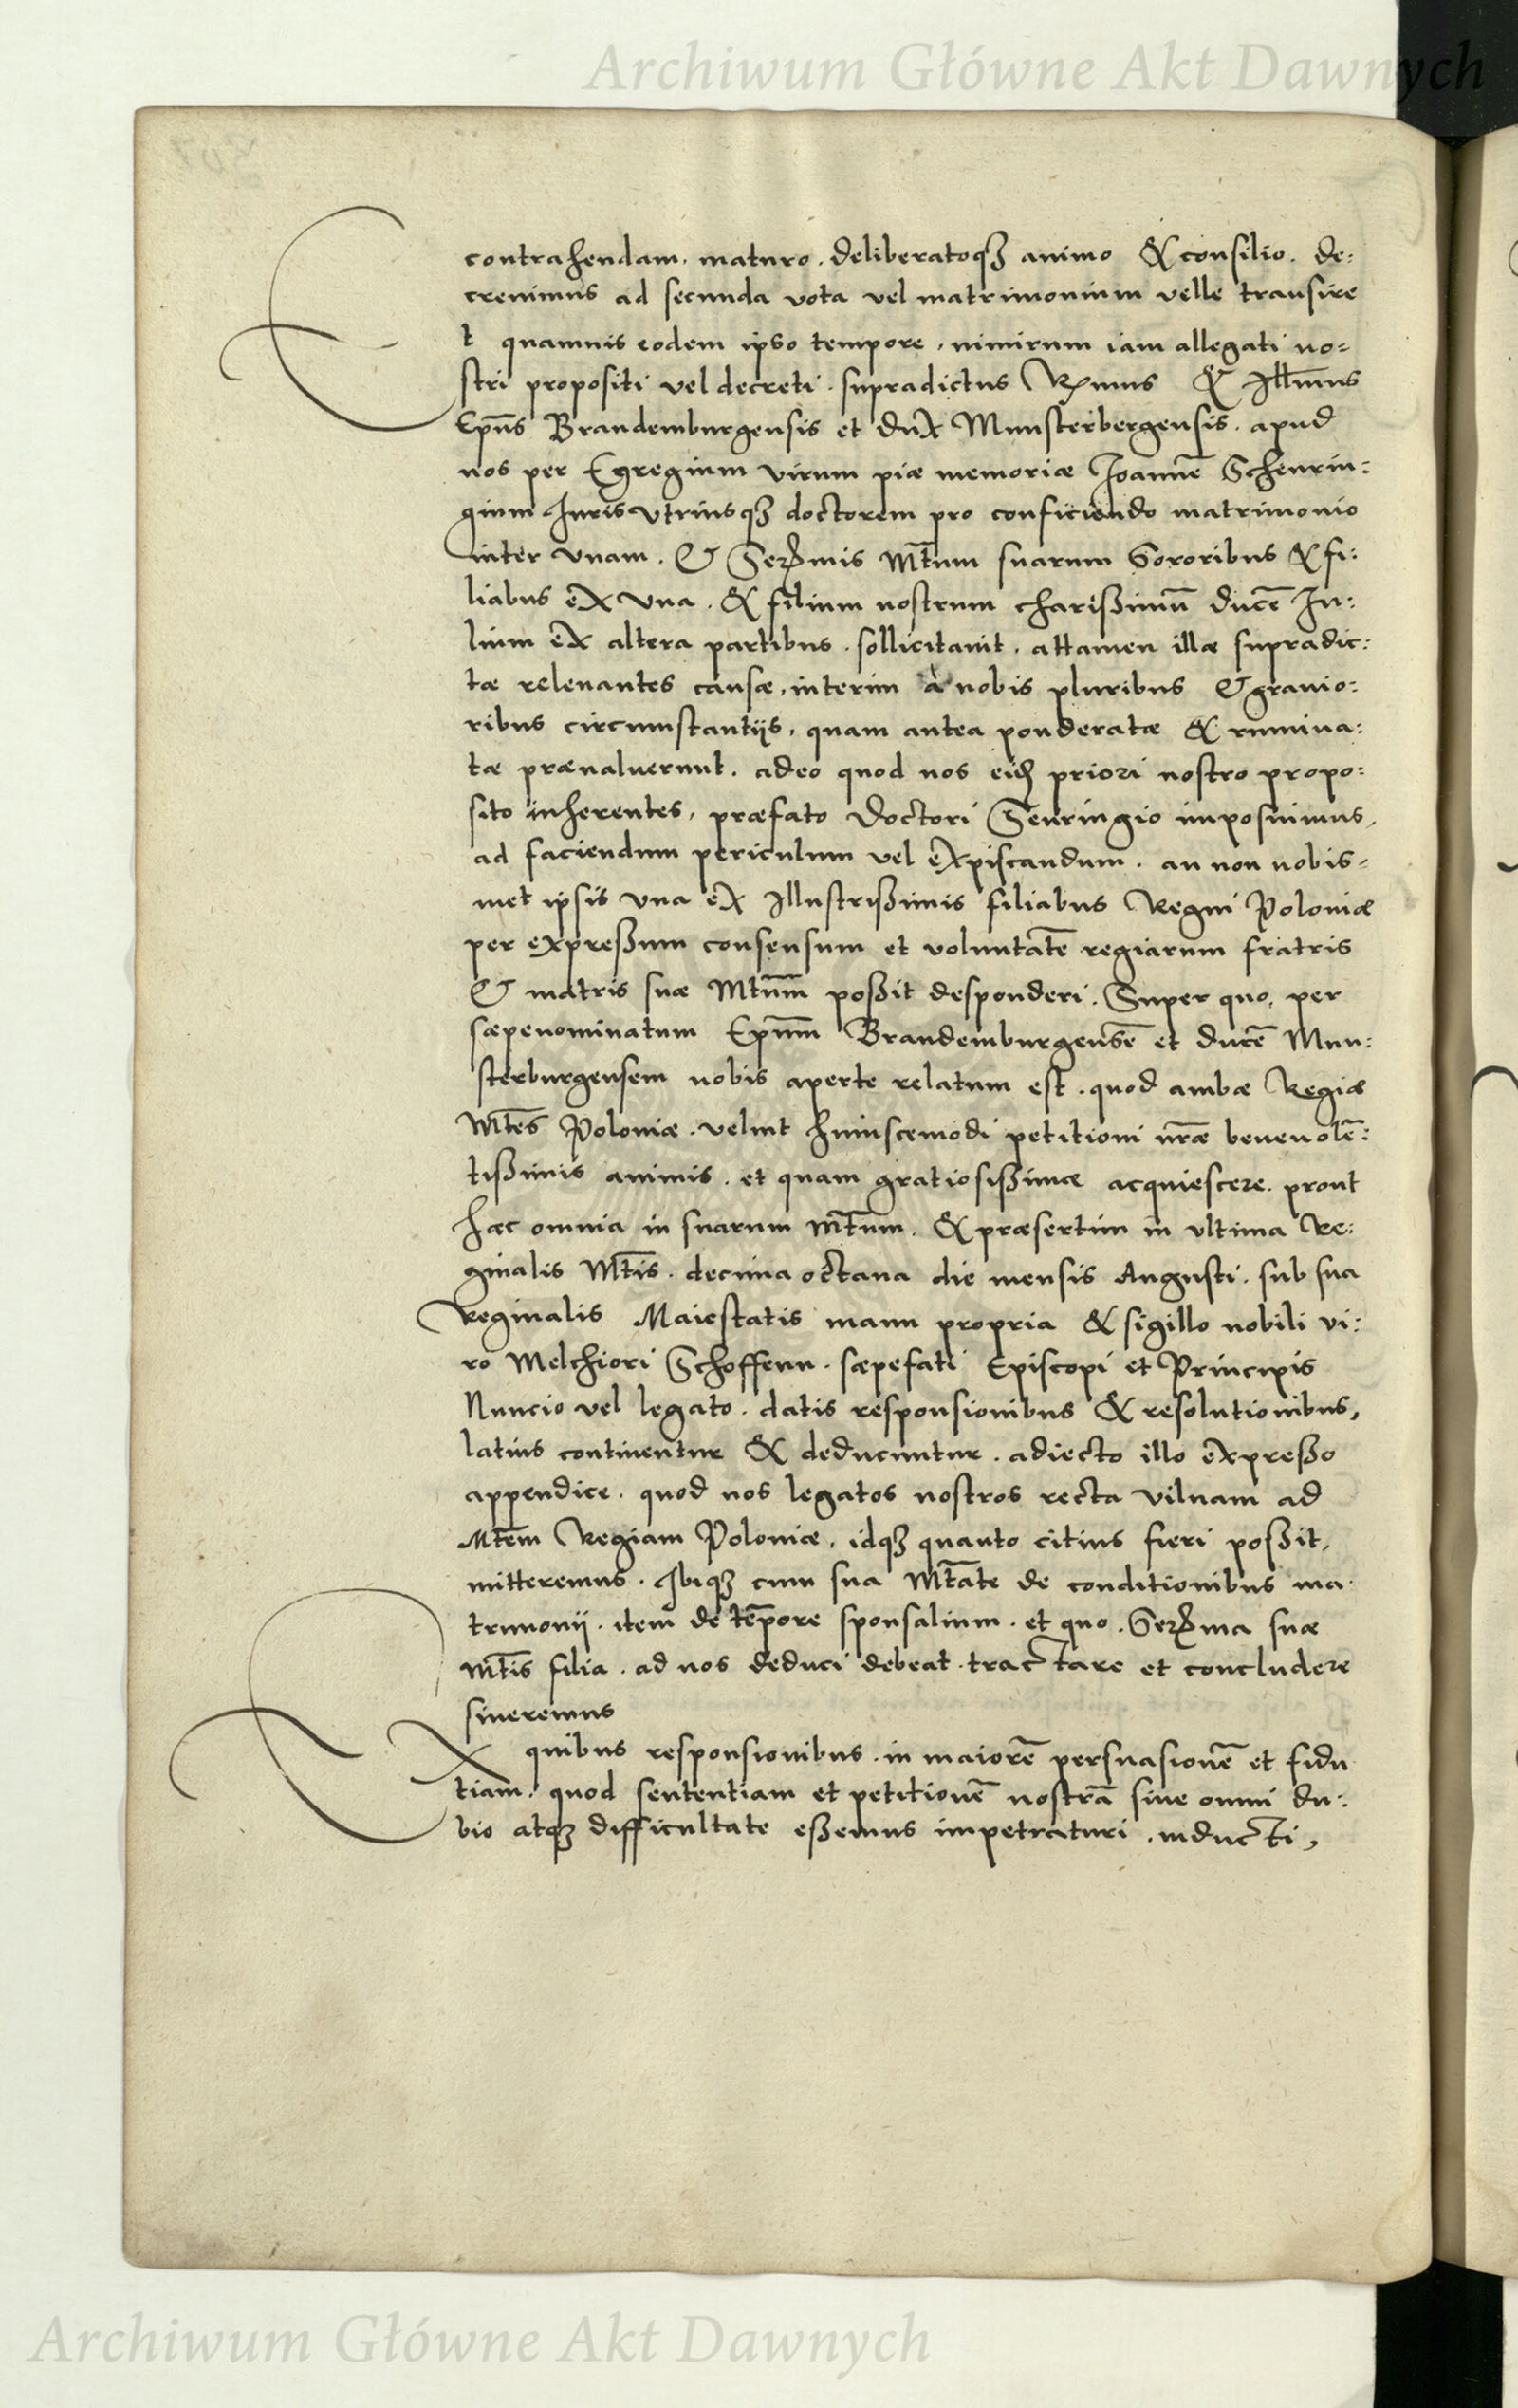 Archiwum Główne Akt Dawnych
contrahendam, maturo, deliberatoqȝ animo & consilio, de:
creuimus ad secunda vota vel matrimonium velle transire
Et quamuis eodem ipso tempore, nimirum iam allegati no=
stri propositi vel decreti, supradictus Rmus & Illmus
Epus Brandemburgensis et dux Munsterbergensis, apud
nos per Egregium virum piæ memoriæ Joannē Scheurin:
gium Iuris vtriusqȝ doctorem pro conficiendo matrimonio
inter vnam, & Sermis Mtum suarum Sororibus & fi:
liabus ex vna, & filium nostrum charißimū ducē Iu:
lium ex altera partibus, sollicitauit, attamen illæ supradic:
tæ releuantes causæ, interim à nobis pluribus & grauio:
ribus circumstantijs, quam antea ponderatæ & rumina:
tæ præualuerunt, adeo quod nos eidē priori nostro propo:
sito inherentes, præfato Doctori Seuringio imposuimus,
ad faciendum periculum vel expiscandum, an non nobis=
met ipsis vna ex Illustrißimis filiabus Regni Poloniæ
per expreßum consensum et voluntatē regiarum fratris
& matris suæ Mtum poßit desponderi. Super quo, per
sæpenominatum Epum Brandemburgensē et ducē Mun:
sterburgensem nobis aperte relatum est, quod ambæ Regiæ
Mtēs Poloniæ, velint huiuscemodi petitioni nræ beneuolē:
tißimis animis, et quam gratiosißimæ acquiescere, prout
hæc omnia in suarum Mtum, & præsertim in vltima Re:
ginalis Mtis, decima octaua die mensis Augusti, sub sua
Reginalis Maiestatis manu propria & sigillo nobili vi:
ro Melchiori Schoffenn, sæpefati Episcopi et Principis
Nuncio vel legato, datis responsionibus & resolutionibus,
latius continentur & deducuntur, adiecto illo expreßo
appendice, quod nos legatos nostros recta vilnam ad
Mtem Regiam Poloniæ, idqȝ quanto citius fieri poßit,
mitteremus, Ibiqȝ cum sua Mtate de conditionibus ma
trimonij, item de tēpore sponsalium, et quo, Serma suæ
Mtis filia, ad nos deduci debeat, tractare et concludere
sineremus
Ex quibus responsionibus, in maiorē persuasionē et fidu
tiam, quod sententiam et petitionē nostrā sine omni du:
bio atqȝ difficultate eßemus impetraturi, inducti,
Archiwum Główne Akt Dawnych